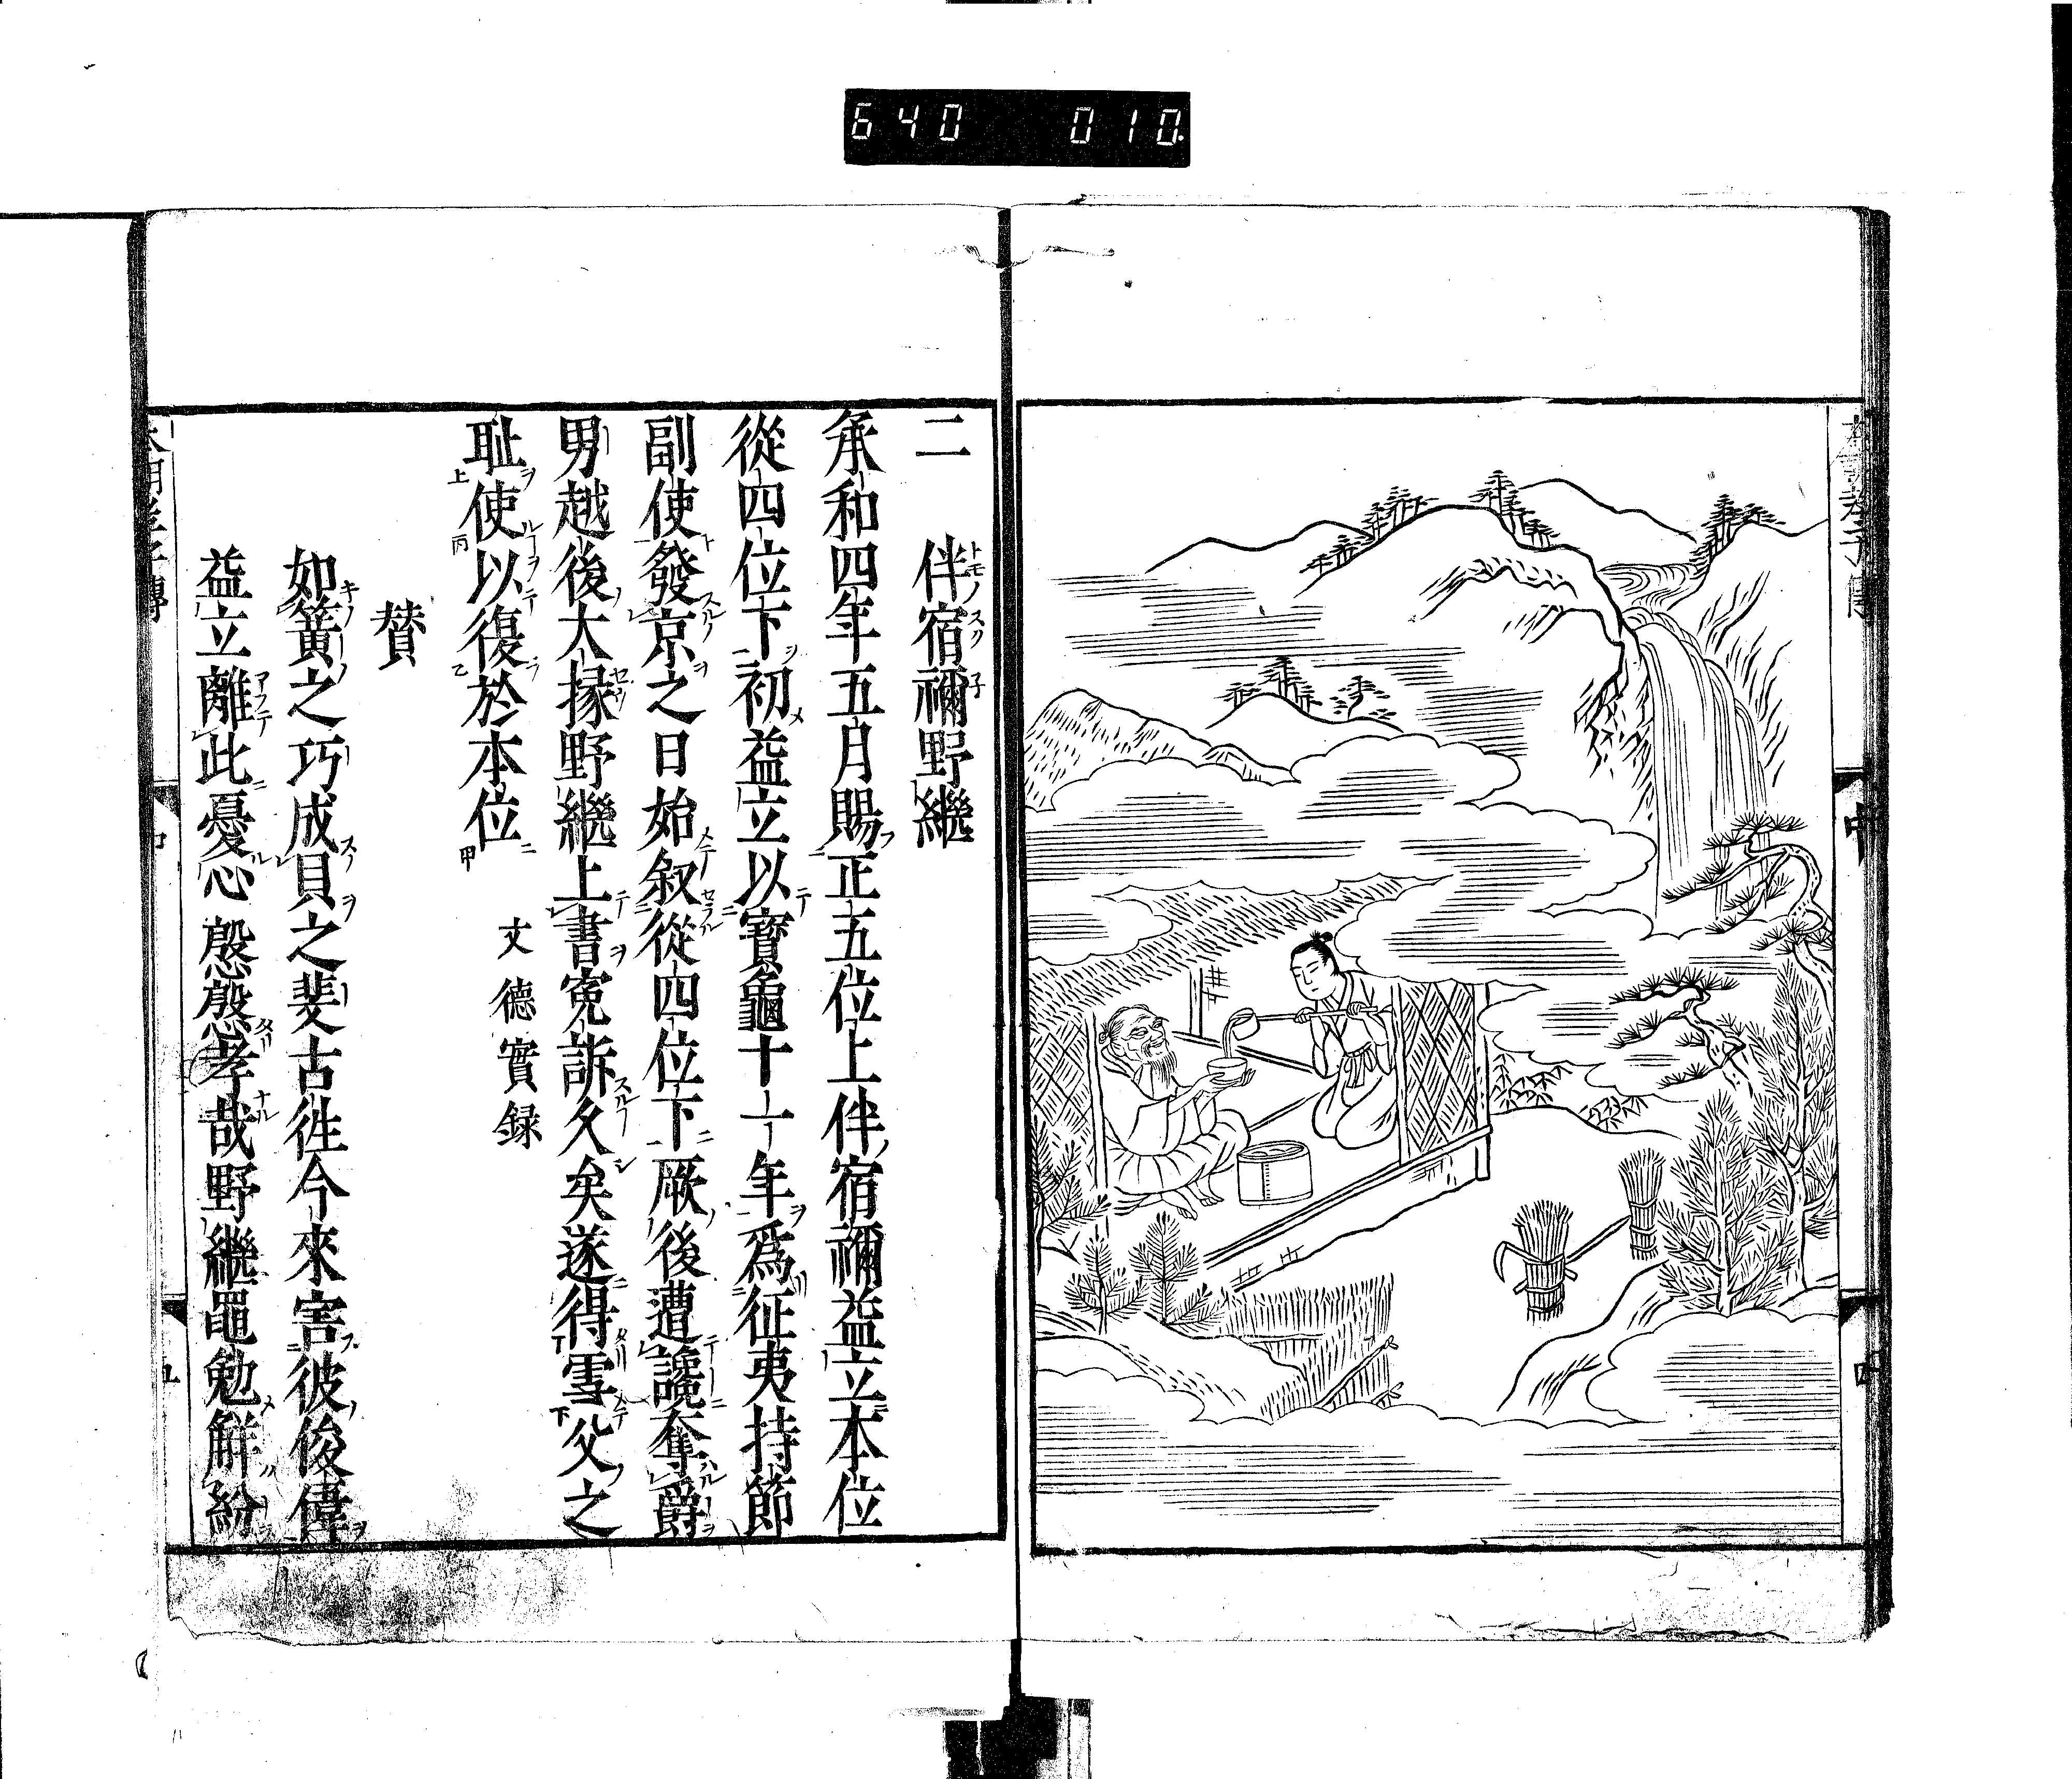 640 010
本朝孝子傳
中
四
二 伴宿禰野繼
承和四年五月賜正五位上伴宿禰益立本位
從四位下初益立以寶龜十一年爲征夷持節
副使發京之日始叙從四位下厥後遭讒奪爵
男越後大掾野繼上書寃訴久矣遂得雪父之
耻使以復於本位 文德實録
賛
如簧之巧成貝之斐古徃今來害彼俊偉
益立離此憂心慇慇孝哉野繼黽勉解紛
本朝孝子傳